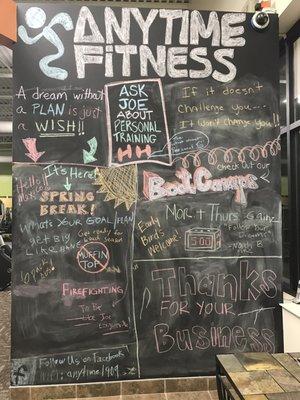 ANYTIME
FITNESS
A dream without
a PLAN is just
a WISH!!
ASK
JOE
ABOUT
PERSONAL
TRAINING
If it doesn't
challenge you...
It won't change you!!
check out
Boot Camps
It's Here!
SPRING
BREAK!
What's your GOAL/PLAN
Get ready for
beach season
Get BIG
Like
MUFFIN
TOP
FIREFIGHTING
To Be
Like Joe
Mon + Thurs
Early
Birds
Welcome
5:00
Follow Your
Dreams
Thanks
FOR YOUR
Business
Follow Us on Facebook
anytime1909